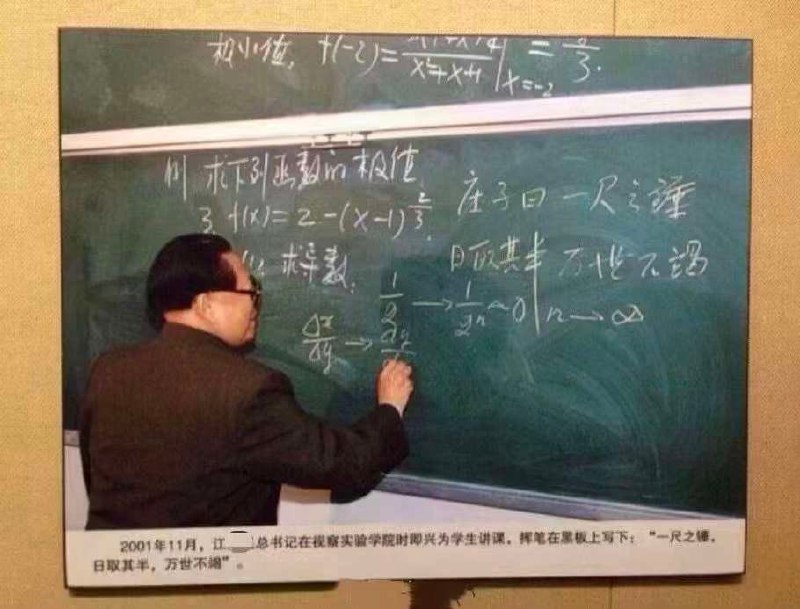 极小值, f(-2)= x²+x+1 | x=-2 = 3.
例 求下列函数的极值
3. f(x)=2-(x-1)^{2/3}.
求导数.
庄子曰 一尺之锤
日取其半 万世不竭
1/2 → 1/2ⁿ ~ 0 | n → ∞
Δx/Δy →
2001年11月，江 总书记在视察实验学院时即兴为学生讲课，挥笔在黑板上写下：“一尺之锤，
日取其半，万世不竭”。